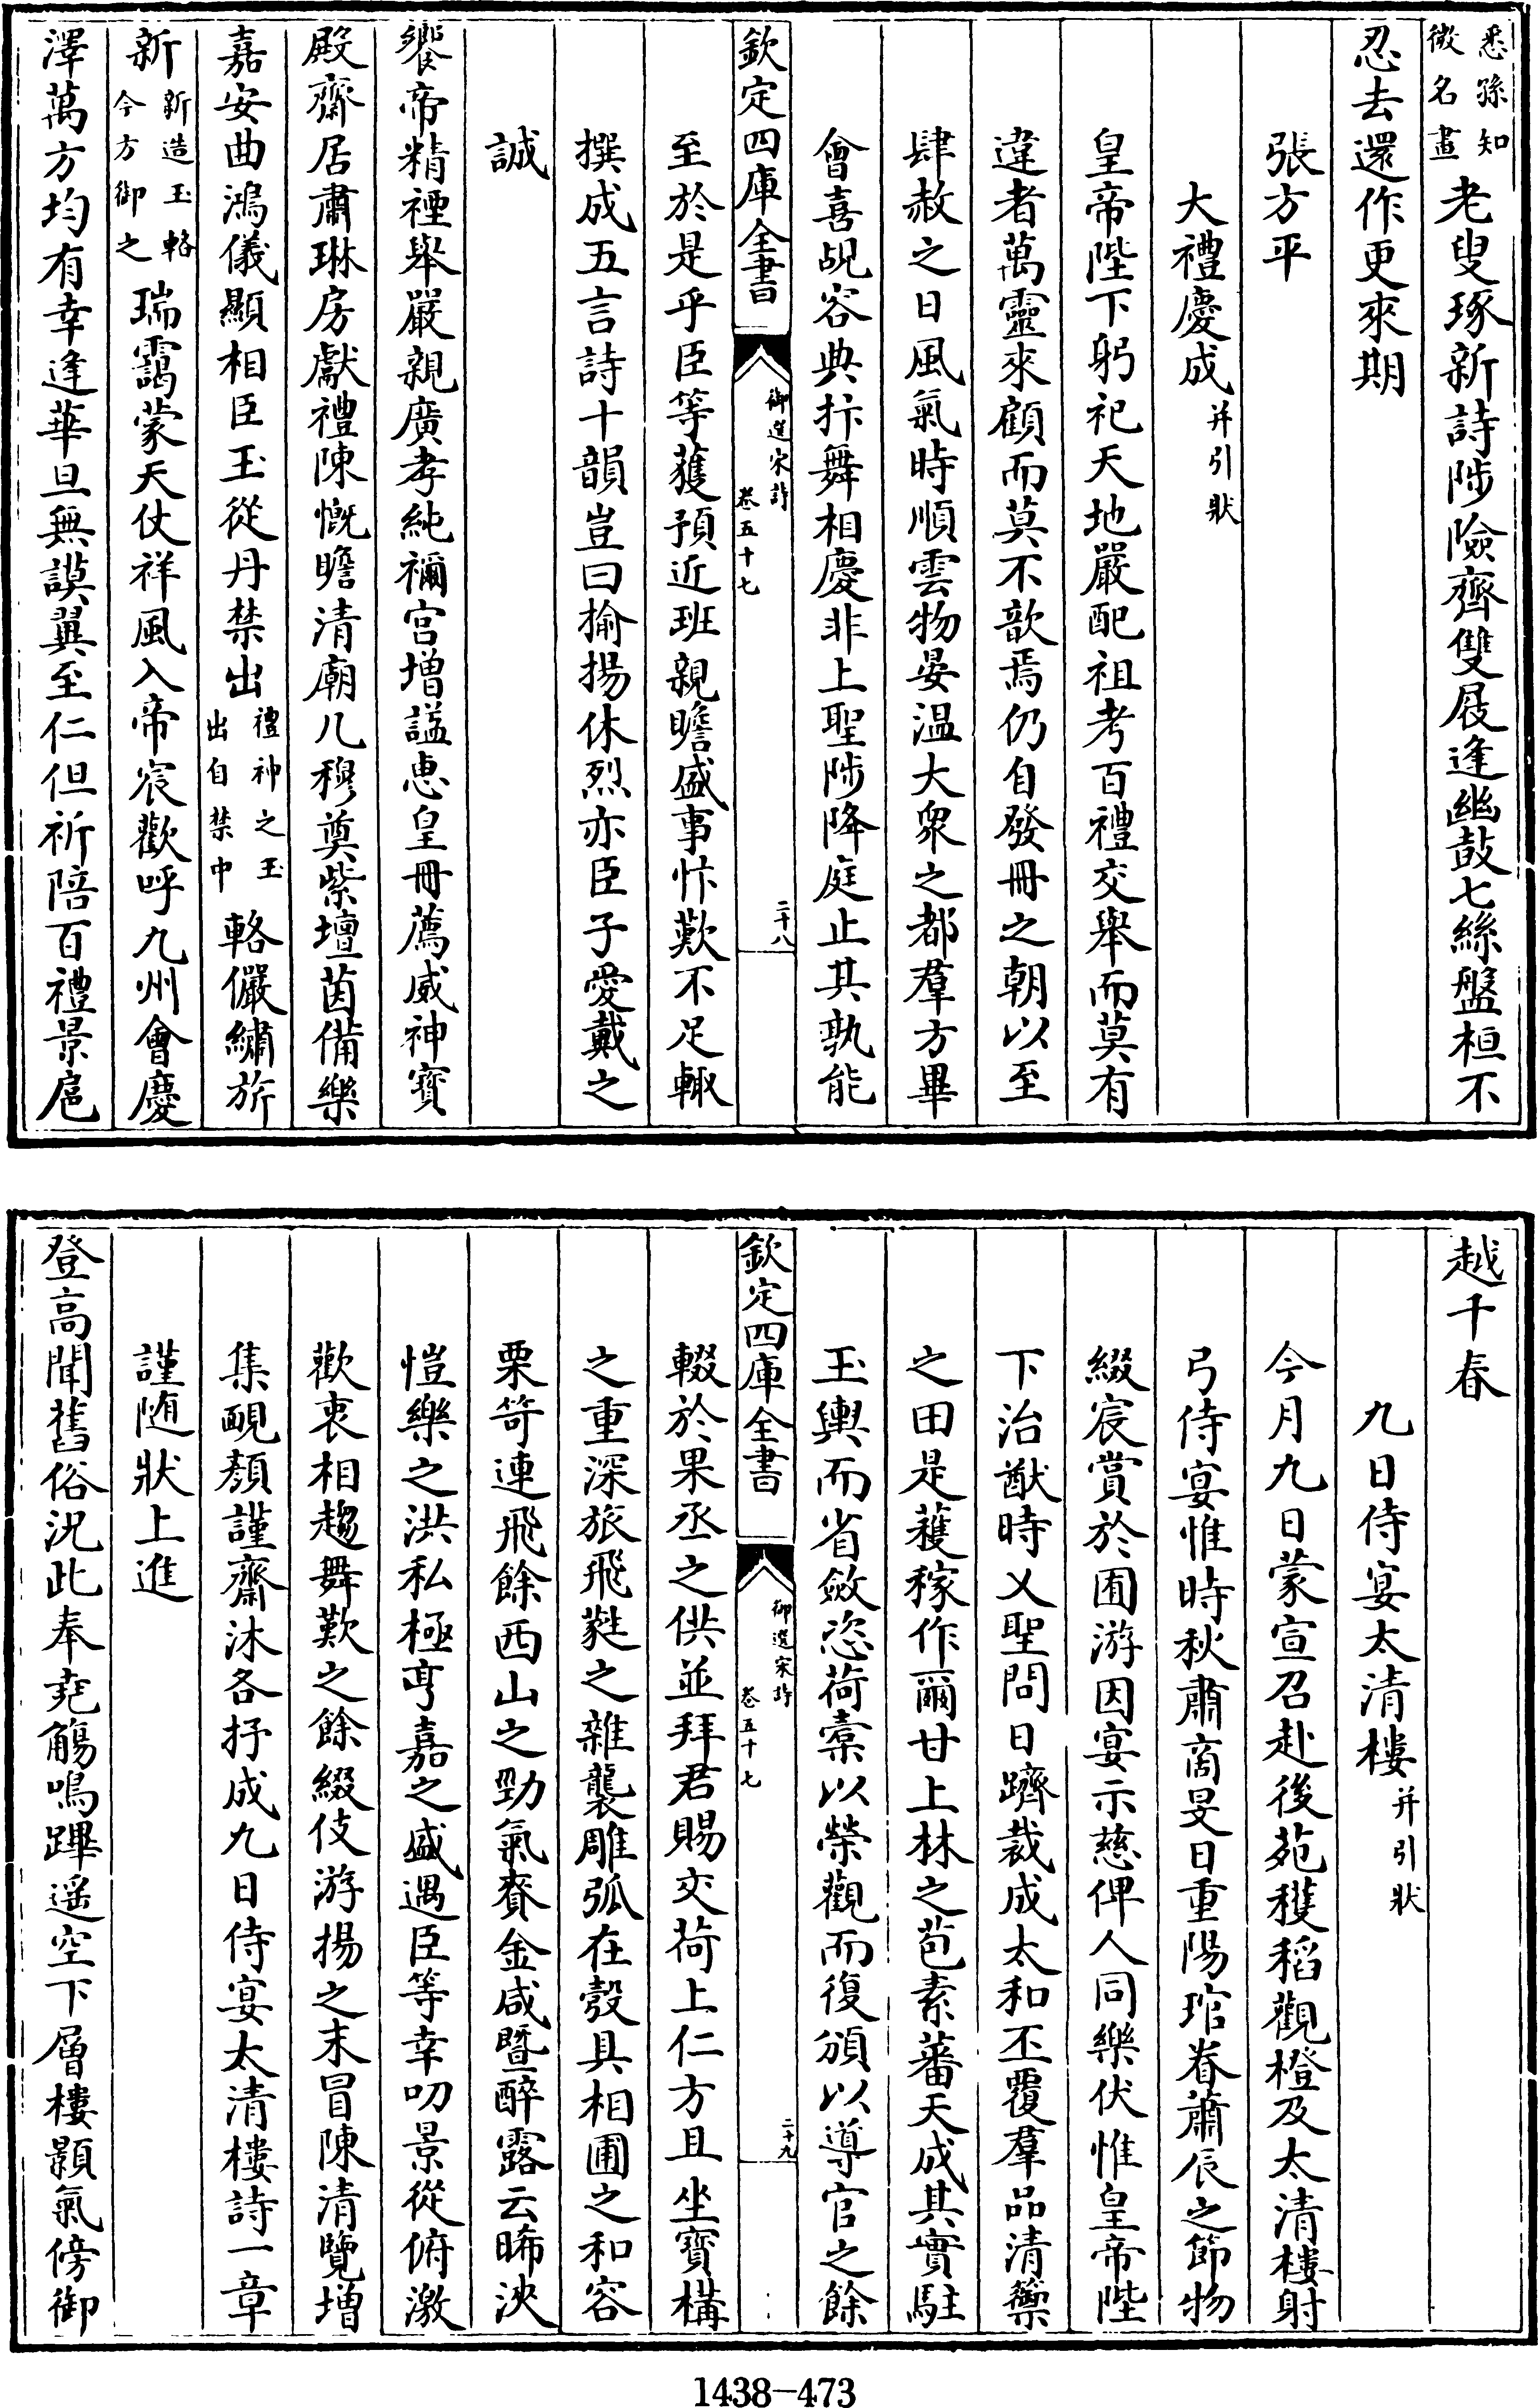 悉孫知
微名畫老叟琢新詩陟險齊雙屐逢幽鼓七絲盤桓不
忍去還作更來期
張方平
大禮慶成并引狀
皇帝陛下躬祀天地嚴配祖考百禮交舉而莫有
違者萬靈來顧而莫不歆焉仍自發冊之朝以至
肆赦之日風氣時順雲物晏温大衆之都羣方畢
會喜覘容典抃舞相慶非上聖陟降庭止其孰能
欽定四庫全書
御選宋詩
卷五十七
二十八
至於是乎臣等獲預近班親瞻盛事忭歎不足輙
撰成五言詩十韻豈曰揄揚休烈亦臣子愛戴之
誠
饗帝精禋舉嚴親廣孝純禰宫增諡惠皇冊薦威神寳
殿齋居肅琳房獻禮陳慨瞻清廟几穆奠紫壇茵備樂
嘉安曲鴻儀顯相臣玉從丹禁出禮神之玉出自禁中輅儼繡旂
新新造玉輅今方御之瑞靄蒙天仗祥風入帝宸歡呼九州會慶
澤萬方均有幸逢華旦無謨翼至仁但祈陪百禮景扈
越千春
九日侍宴太清樓并引狀
今月九日蒙宣召赴後苑穫稻觀橙及太清樓射
弓侍宴惟時秋肅啇旻日重陽琯眷蕭辰之節物
綴宸賞於囿游因宴示慈俾人同樂伏惟皇帝陛
下治猷時乂聖問日躋裁成太和丕覆羣品清籞
之田是蕿稼作爾甘上林之苞素蕃天成其實駐
玉輿而省斂恣荷橐以榮觀而復頒以導官之餘
欽定四庫全書
御選宋詩
卷五十七
二十九
輟於果丞之供並拜君賜交荷上仁方且坐寳構
之重深旅飛蕤之雜襲雕弧在彀具相圃之和容
栗笴連飛餘西山之勁氣賚金咸曁醉露云晞浹
愷樂之洪私極亨嘉之盛遇臣等幸叨景從俯激
歡衷相趨舞歎之餘綴伎游揚之末冒陳清覽增
集靦顔謹齋沐各抒成九日侍宴太清樓詩一章
謹随狀上進
登高聞舊俗況此奉堯觴鳴蹕遥空下層樓顥氣傍御
1438—473